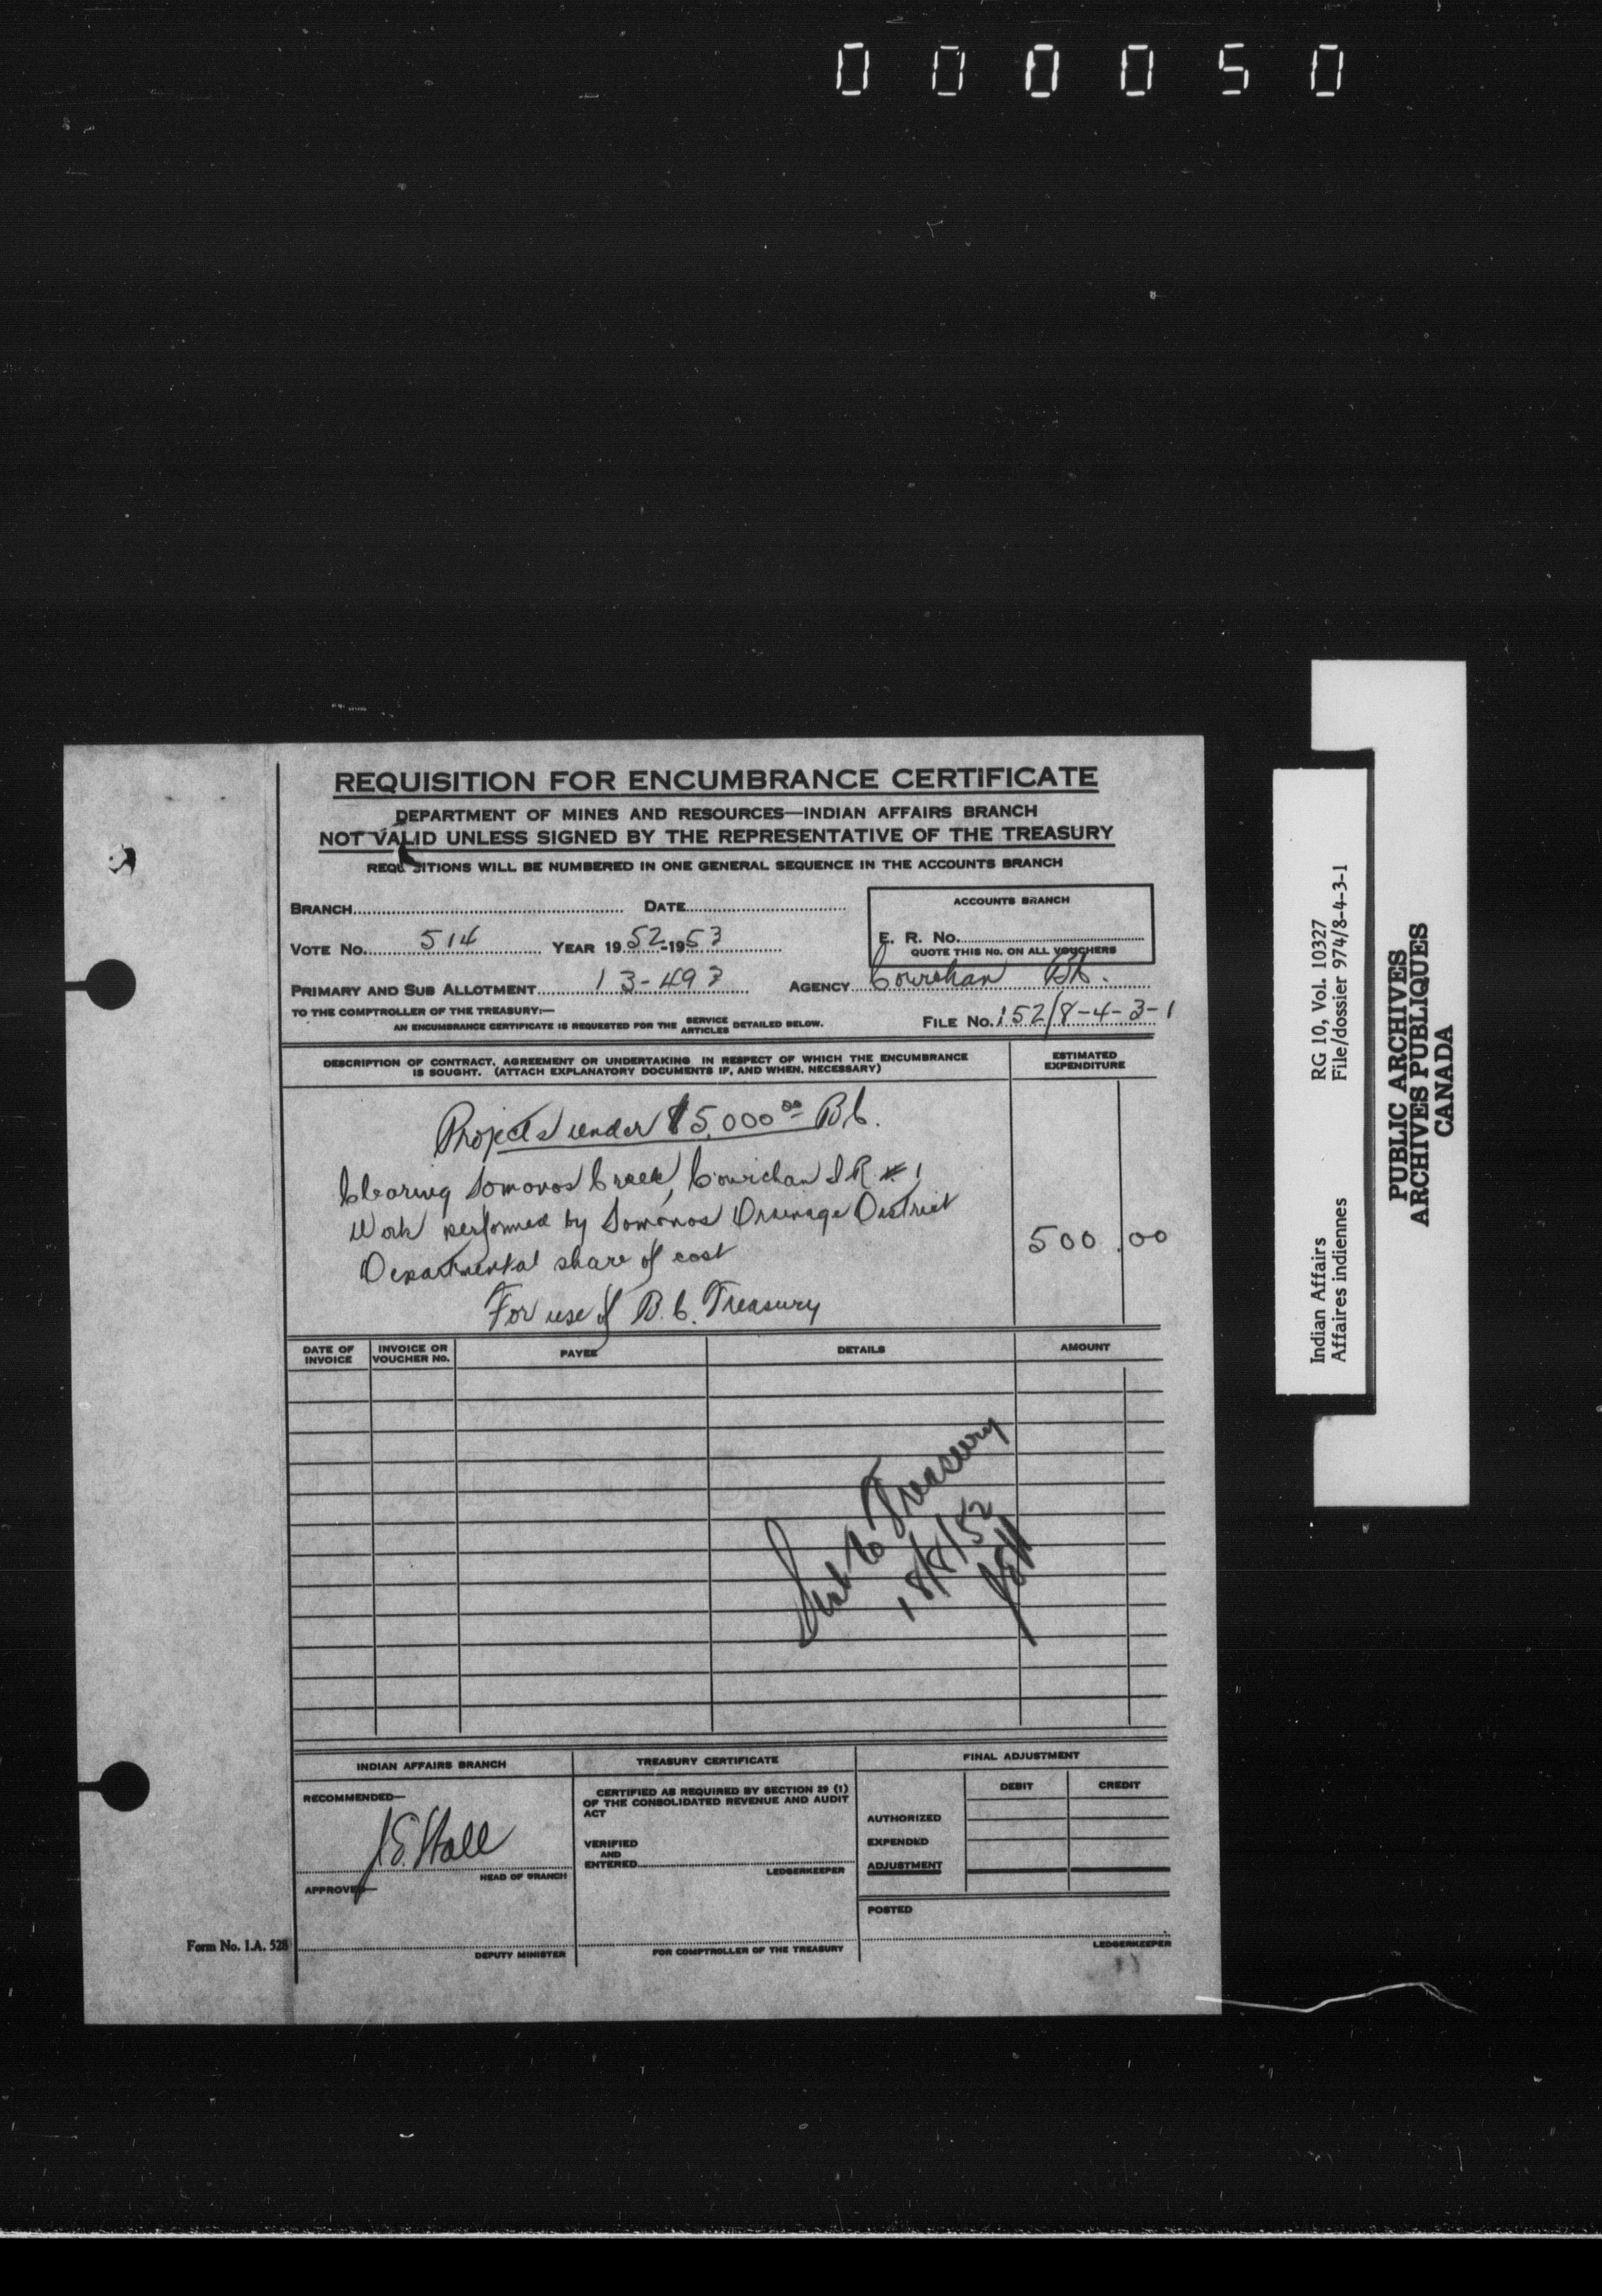 000050
REQUISITION FOR ENCUMBRANCE CERTIFICATE
DEPARTMENT OF MINES AND RESOURCES—INDIAN AFFAIRS BRANCH
NOT VALID UNLESS SIGNED BY THE REPRESENTATIVE OF THE TREASURY
REQUISITIONS WILL BE NUMBERED IN ONE GENERAL SEQUENCE IN THE ACCOUNTS BRANCH
BRANCH DATE
ACCOUNTS BRANCH
VOTE No. 514 YEAR 1952-1953
E. R. No.
QUOTE THIS No. ON ALL VOUCHERS
PRIMARY AND SUB ALLOTMENT 13-493 AGENCY Cowichan BC.
TO THE COMPTROLLER OF THE TREASURY:—
AN ENCUMBRANCE CERTIFICATE IS REQUESTED FOR THE SERVICE ARTICLES DETAILED BELOW.
FILE No. 152/8-4-3-1
DESCRIPTION OF CONTRACT, AGREEMENT OR UNDERTAKING IN RESPECT OF WHICH THE ENCUMBRANCE
IS SOUGHT. (ATTACH EXPLANATORY DOCUMENTS IF, AND WHEN, NECESSARY)
ESTIMATED
EXPENDITURE
Projects under $5,000 00 BC.
Clearing Somonos Creek, Cowichan I R # 1
Work performed by Somonos Drainage District
Departmental share of cost
500.00
For use of B.C. Treasury
DATE OF INVOICE INVOICE OR VOUCHER No. PAYEE DETAILS AMOUNT
Sent to Treasury
18/8/52
JEH
INDIAN AFFAIRS BRANCH
RECOMMENDED—
J.E. Hall
HEAD OF BRANCH
APPROVED—
DEPUTY MINISTER
TREASURY CERTIFICATE
CERTIFIED AS REQUIRED BY SECTION 29 (1)
OF THE CONSOLIDATED REVENUE AND AUDIT
ACT
VERIFIED
AND
ENTERED
LEDGERKEEPER
FOR COMPTROLLER OF THE TREASURY
FINAL ADJUSTMENT
DEBIT CREDIT
AUTHORIZED
EXPENDED
ADJUSTMENT
POSTED
LEDGERKEEPER
Form No. I.A. 528
Indian Affairs RG 10, Vol. 10327
Affaires indiennes File/dossier 974/8-4-3-1
PUBLIC ARCHIVES
ARCHIVES PUBLIQUES
CANADA